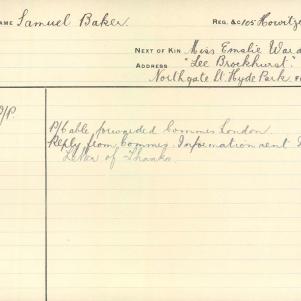 NAME Samuel Baker. REG. &c 105 Howitz
NEXT OF KIN Miss Emslie Ward
ADDRESS "Lee Brockhurst".
Northgate St. Hyde Park
P/Cable forwarded Commrs London.
Reply from Commrs. Information sent
Letter of Thanks.